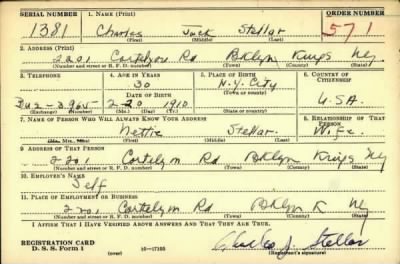 SERIAL NUMBER 1. NAME (Print) ORDER NUMBER
1381 Charles Jack Stellar 571
(First) (Middle) (Last)
2. ADDRESS (Print)
2201 Cortelyou Rd Bklyn Kings Ny
(Number and street or R. F. D. number) (Town) (County) (State)
3. TELEPHONE 4. AGE IN YEARS 5. PLACE OF BIRTH 6. COUNTRY OF CITIZENSHIP
30 N.Y. City
DATE OF BIRTH
2-20 1910 U.S.A.
(Exchange) (Number) (Mo.) (Day) (Yr.) (State or country)
7. NAME OF PERSON WHO WILL ALWAYS KNOW YOUR ADDRESS 8. RELATIONSHIP OF THAT PERSON
Nettie Stellar Wife
(Mr., Mrs., Miss) (First) (Middle) (Last)
9. ADDRESS OF THAT PERSON
2201 Cortelyou Rd Bklyn Kings Ny
(Number and street or R. F. D. number) (Town) (County) (State)
10. EMPLOYER'S NAME
Self
11. PLACE OF EMPLOYMENT OR BUSINESS
2201 Cortelyou Rd Bklyn K Ny
(Number and street or R. F. D. number) (Town) (County) (State)
I AFFIRM THAT I HAVE VERIFIED ABOVE ANSWERS AND THAT THEY ARE TRUE.
REGISTRATION CARD
D. S. S. Form 1 (over) 16—17105 Charles J. Stellar
(Registrant's signature)